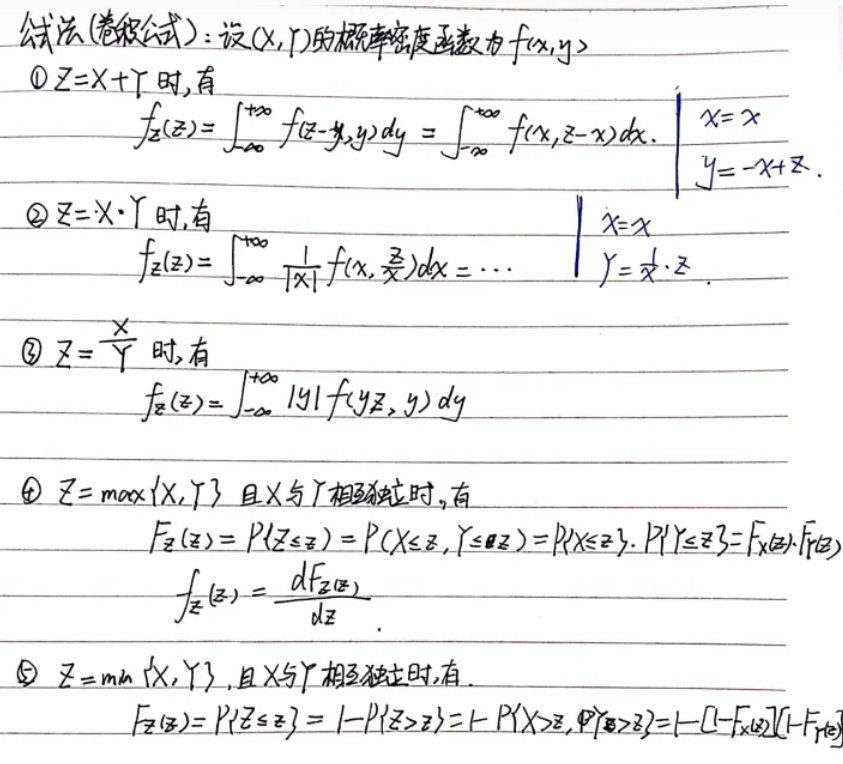 公式法(卷积公式):设(X,Y)的概率密度函数为f(x,y)
① Z=X+Y时,有
f_Z(z)=∫_{-∞}^{+∞} f(z-y,y)dy = ∫_{-∞}^{+∞} f(x,z-x)dx. | x=x
y=-x+z.
② Z=X·Y时,有 | x=x
f_Z(z)=∫_{-∞}^{+∞} 1/|x| f(x,z/x)dx=··· | y=1/x·z.
③ Z=X/Y 时,有
f_Z(z)=∫_{-∞}^{+∞} |y| f(yz,y)dy
④ Z=max{X,Y} 且X与Y相互独立时,有
F_Z(z)=P{Z≤z}=P(X≤z,Y≤z)=P{X≤z}·P{Y≤z}=F_X(z)·F_Y(z)
f_Z(z)=dF_Z(z)/dz.
⑤ Z=min{X,Y},且X与Y相互独立时,有.
F_Z(z)=P{Z≤z}=1-P{Z>z}=1-P{X>z,Y>z}=1-[1-F_X(z)][1-F_Y(z)]